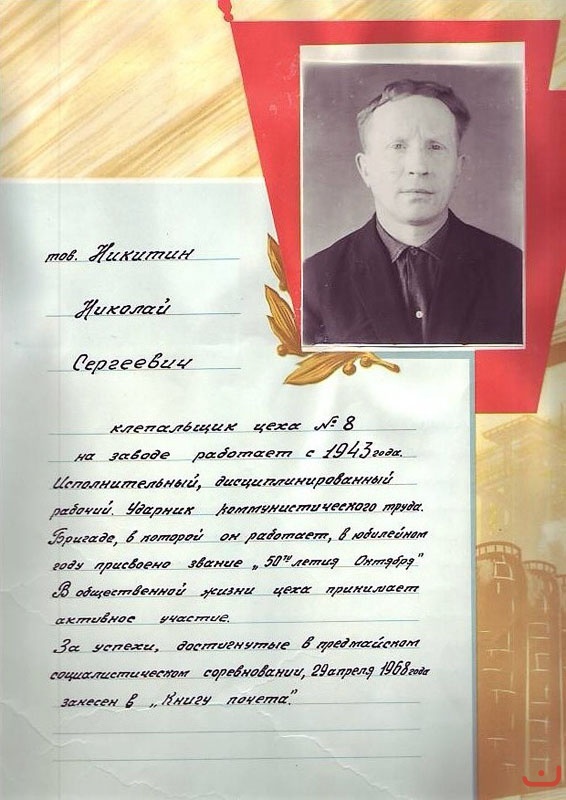 тов. Никитин
Николай
Сергеевич
клепальщик цеха № 8
на заводе работает с 1943 года.
Исполнительный, дисциплинированный
рабочий. Ударник коммунистического труда.
Бригаде, в которой он работает, в юбилейном
году присвоено звание „50ти летия Октября"
В общественной жизни цеха принимает
активное участие.
За успехи, достигнутые в предмайском
социалистическом соревновании, 29 апреля 1968 года
занесен в „Книгу почета".